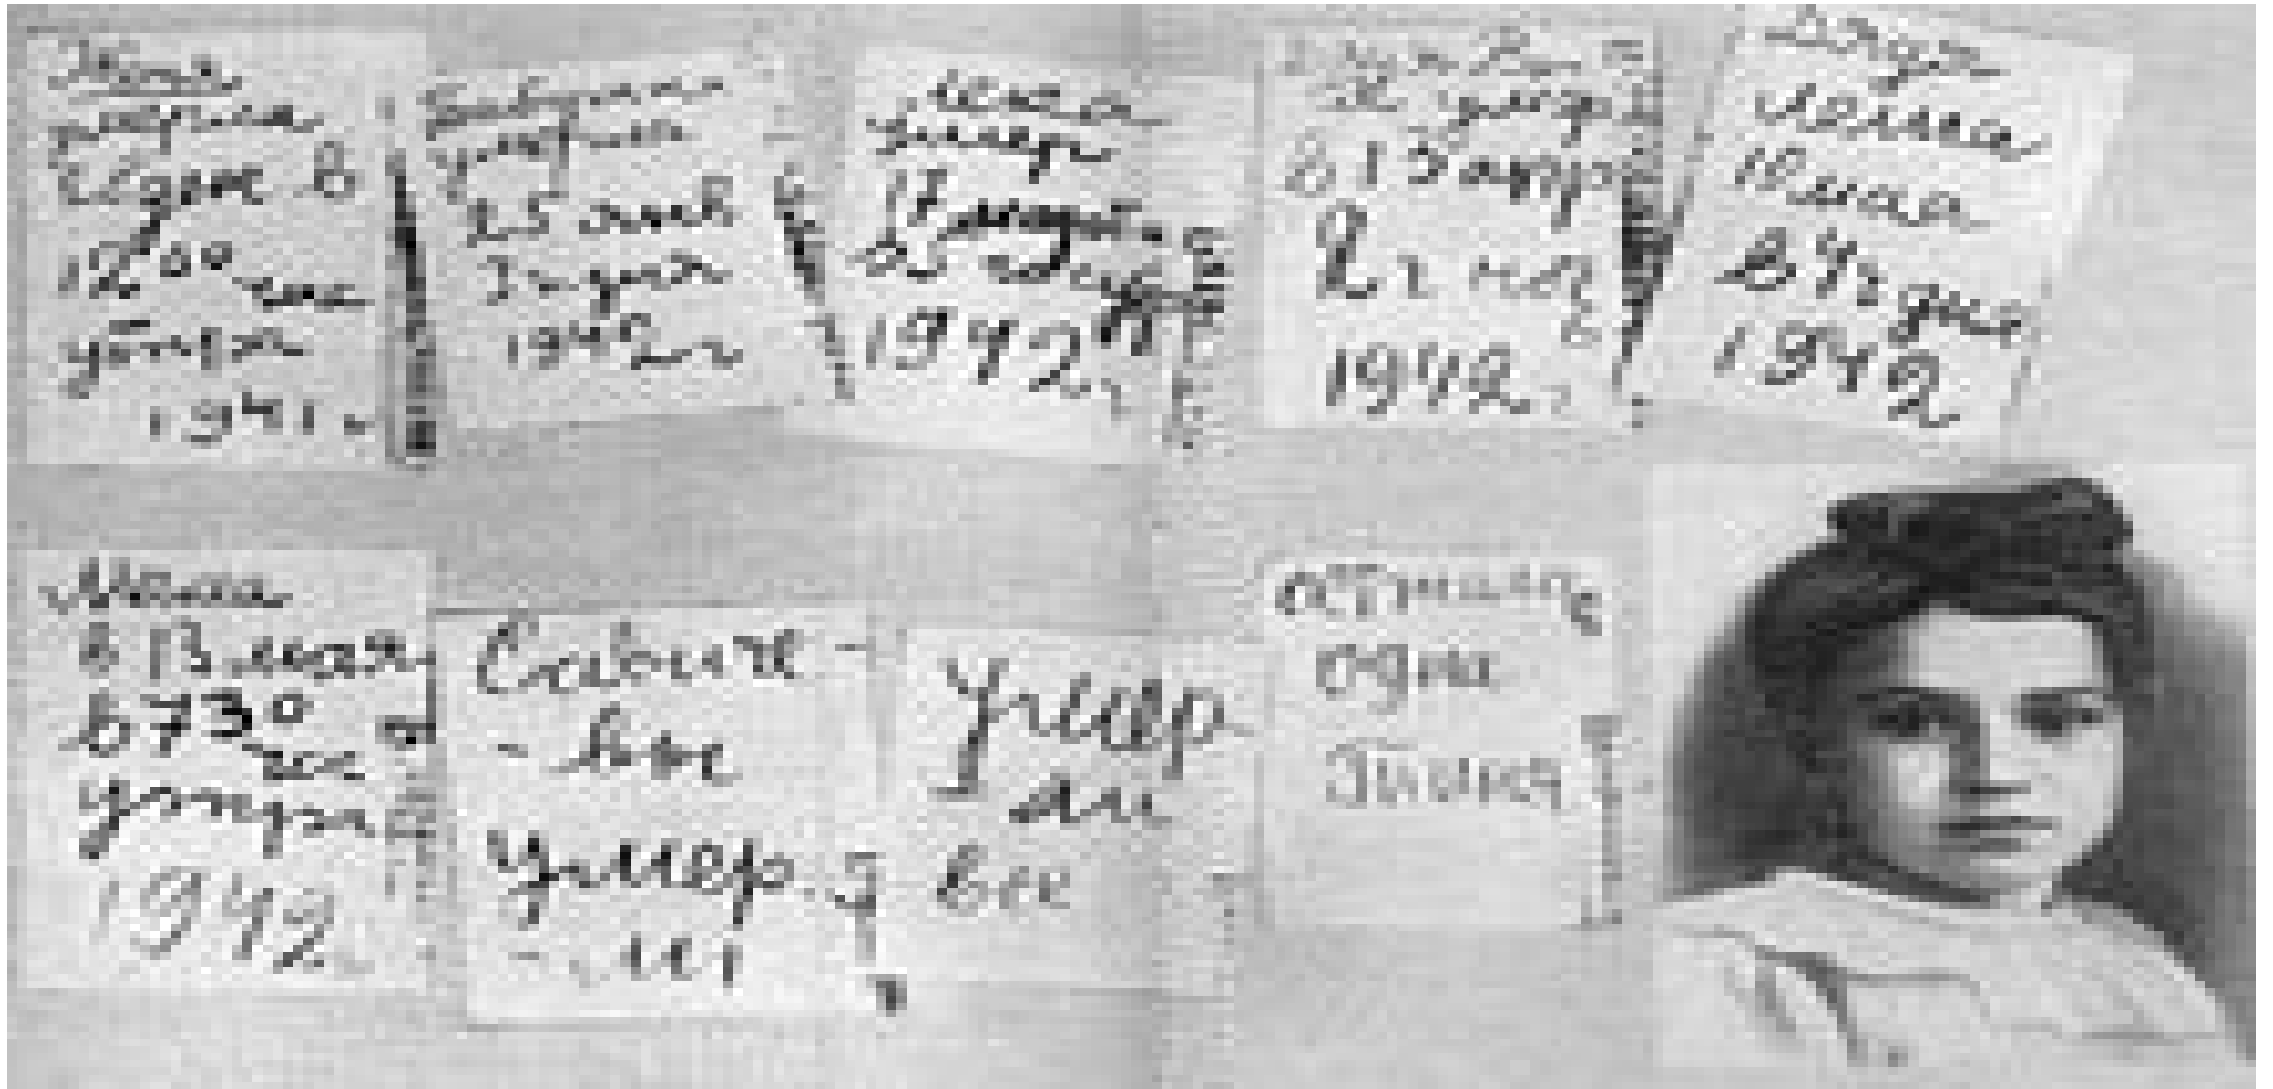 Женя
умерла
28 дек в
12⁰⁰ час
утра
1941 г
Бабушка
умерла
25 янв
3 ч дня
1942 г
Лека
умер
17 марта
в 5 час утр
1942 г
Дядя Вася
умер
в 13 апр
2 ч ноч
1942 г
Дядя
Леша
10 мая
в 4 ч дня
1942
Мама
в 13 мая
в 7³⁰
час
утра
1942
Савиче
-вы
умер
-ли
Умер
ли
все
Осталась
одна
Таня